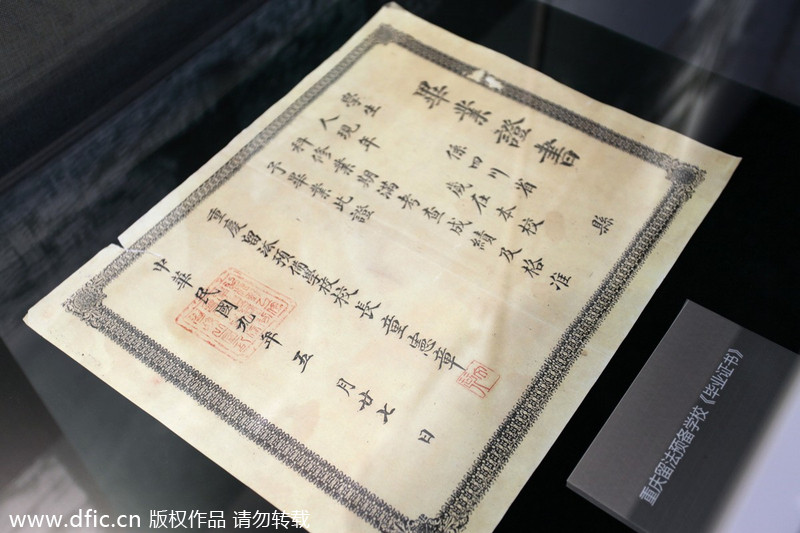 畢業證書
學生 係四川省 縣
人現年 歲在本校
科修業期滿考查成績及格准
予畢業此證
重慶留法預備學校校長童憲章
中華民國九年五月廿七日
重庆留法预备学校《毕业证书》
www.dfic.cn 版权作品 请勿转载